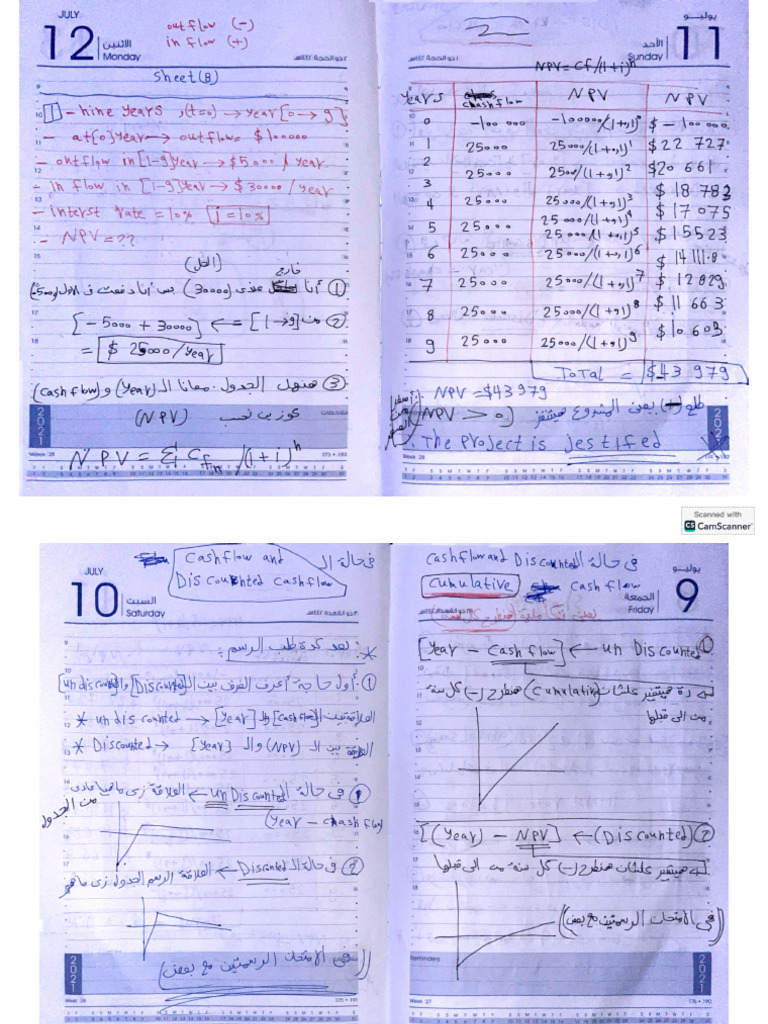 JULY
12
الاثنين
Monday
out flow (-)
in flow (+)
٢ ذو الحجة ١٤٤٢هـ
Sheet (B)
1 - nine years , (t=0) → year [0 → 9]
- at [0] year → out flow = $ 100000
- out flow in [1-9] year → $ 5000 / year
- in flow in [1-9] year → $ 30000 / year
- interst rate = 10% i = 10%
- NPV = ??
(الحل)
② من [1→9] ⇐ [- 5000 + 30000]
= $ 25000 / year
③ هنعمل الجدول معانا الـ (Year) و (Cash flow)
عوزين نحسب (NPV)
NPV = Σ Cfn / (1 + i)^n
2021
ملاحظات
Week 28
173 • 192
يوليــو
11
الأحد
Sunday
١ ذو الحجة ١٤٤٢هـ
2
NPV = Cf / (1 + i)^n
Years chashflow NPV NPV
0 -100 000 -100000/(1+0,1)^0 $ - 100 000
1 25000 25000/(1+0,1)^1 $ 22 727
2 25000 2500/(1+0,1)^2 $20 661
3 $ 18 783
4 25000 25000/(1+0,1)^3 $ 17 075
25000/(1+0,1)^4
5 25000 25000/(1+0,1)^5 $ 15523
6 25000 25000/(1+0,1)^6 $ 14111.8
7 25000 25000/(1+0,1)^7 $ 12829
8 25000 25000/(1+0,1)^8 $ 11 663
9 25000 25000/(1+0,1)^9 $ 10 603
ToTAL = $43 979
NPV = $43 979
(NPV > 0)
طلع (+) يعني المشروع هيتنفز
The Project is jestified
2021
Week 28
174 • 192
Scanned with
CS CamScanner
JULY
10
السبت
Saturday
فى حالة الـ Cashflow and
Discounted cashflow
* بعد كدة طلب الرسم :
① أول حاجة أعرف الفرق بين الـ [Discounted] والـ [undiscounted]
* undiscounted → [year] والـ [cashflow] العلاقة بين الـ
* Discounted → [year] والـ (NPV) العلاقة بين الـ
① فى حالة الـ un Discounted ← العلاقة زى ماهيا عادى
من الجدول
(year - chash flow)
② فى حالة الـ Discounted ← العلاقة الرسم الجدول زى ماهو
((فى الامتحان الرسمتين مع بعض))
2021
Week 28
175 • 191
يوليــو
9
الجمعة
Friday
فى حالة الـ Cashflow and Discounted
Cumulative Cash flow
① [year - Cash flow] ← un Discounted
دة هيتغير علشان (Cumulative) هنطرح (-) كل سنة
من الى قبلها
② [(Year) - NPV] ← (Discounted)
هيتغير علشان هنطرح (-) كل سنة من الى قبلها
((فى الامتحان الرسمتين مع بعض))
Reminders
2021
Week 27
176 • 190